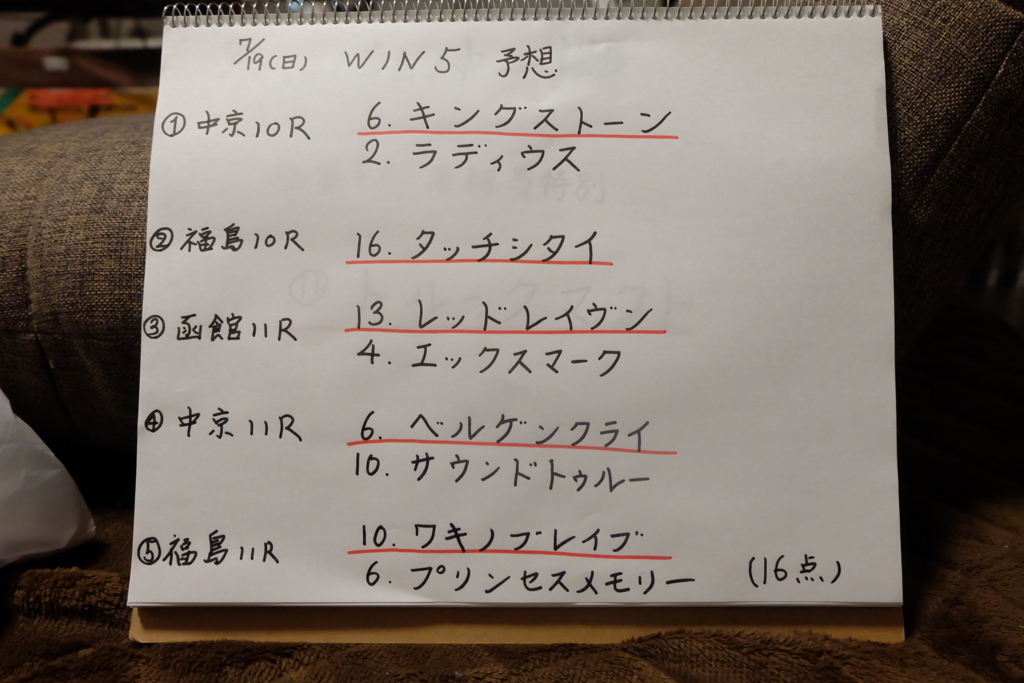 7/19(日) WIN5 予想
①中京10R 6. キングストーン
2. ラディウス
②福島10R 16. タッチシタイ
③函館11R 13. レッドレイヴン
4. エックスマーク
④中京11R 6. ベルゲンクライ
10. サウンドトゥルー
⑤福島11R 10. ワキノブレイブ
6. プリンセスメモリー (16点)